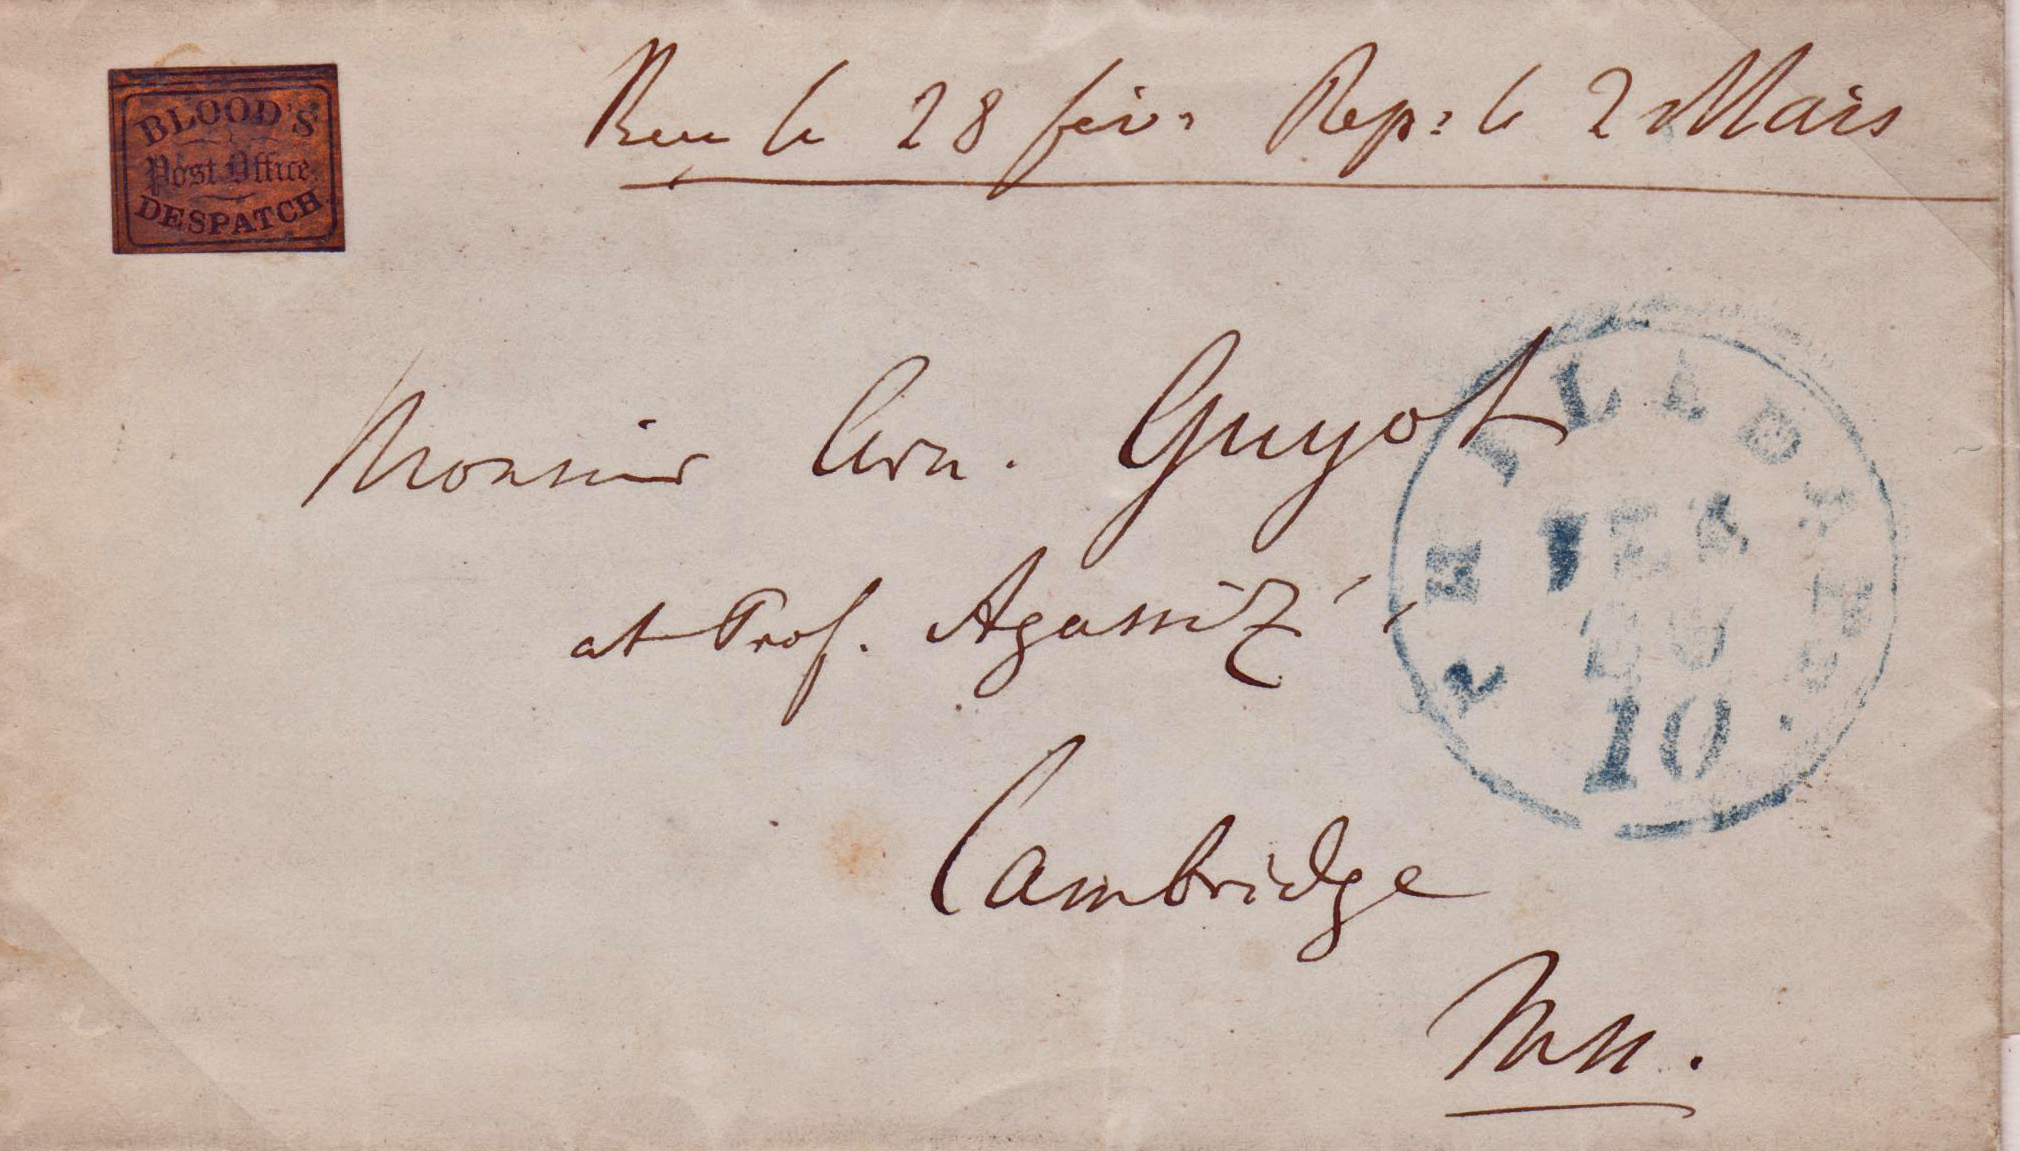 BLOOD'S
Post Office
DESPATCH
Recu le 28 fév. Rep: le 2 Mars
Monsieur Arn. Guyot
at Prof. Agassiz's
Cambridge
Mss.
PHILADELPHIA Pa.
FEB
10